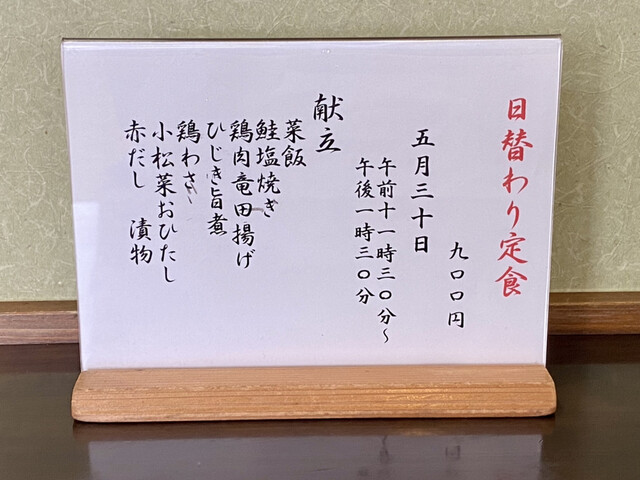 日替わり定食
九〇〇円
五月三十日
午前十一時三〇分～
午後一時三〇分
献立
菜飯
鮭塩焼き
鶏肉竜田揚げ
ひじき旨煮
鶏わさ
小松菜おひたし
赤だし　漬物